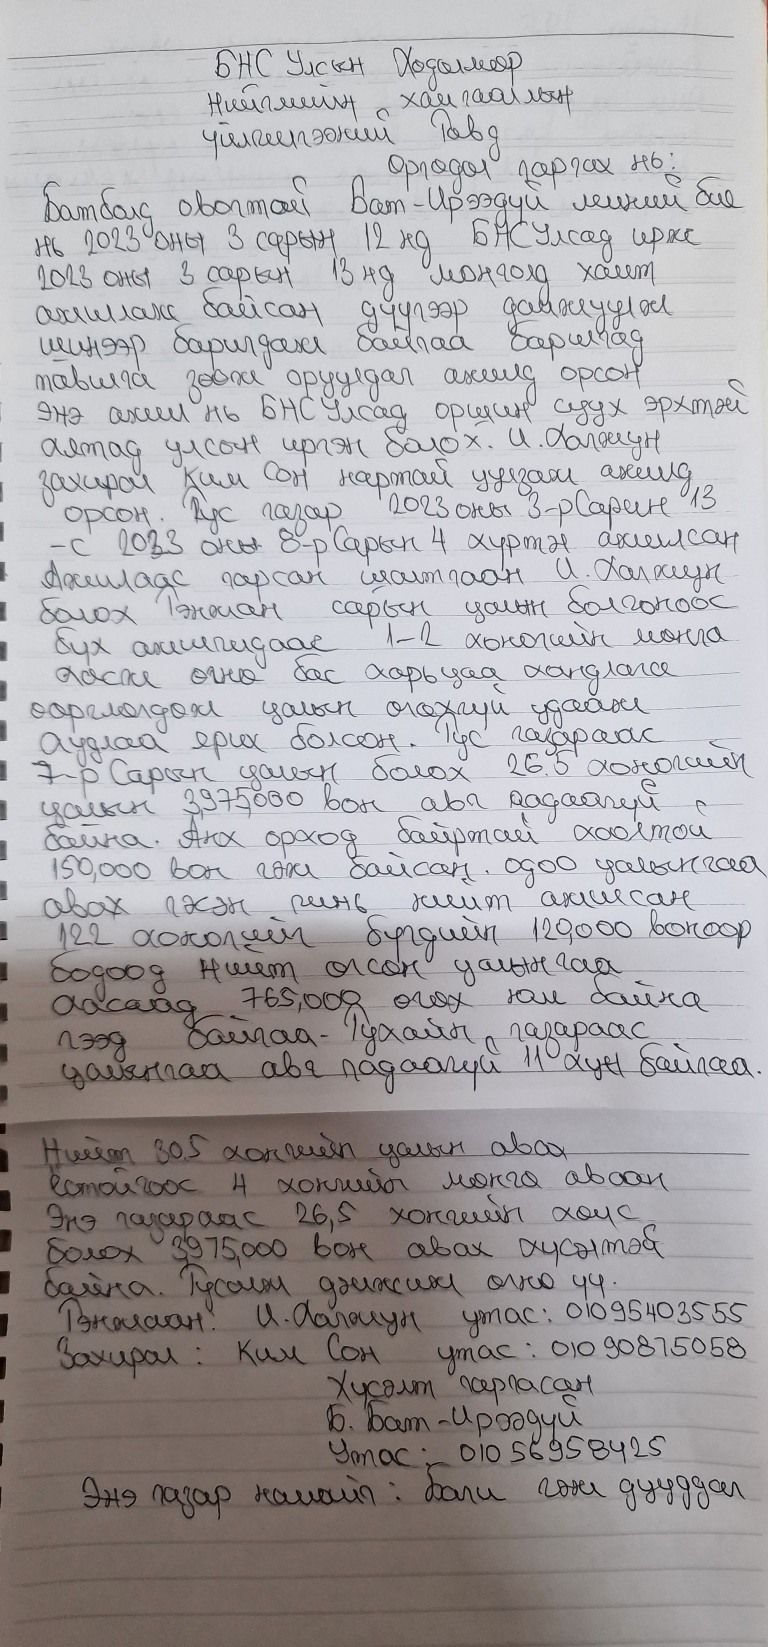 БНС Улсын Ходолмор
Нийгмийн хамгааллын
үйлчилгээний Товд
Оргодол гаргах нь:
Батболд овогтой Бат-Ирээдүй миний бие
нь 2023 оны 3 сарын 12 нд БНСУлсад ирж
2023 оны 3 сарын 13 нд монголд хамт
ажиллаж байсан дүүгээр дамжуулж
шинээр баригдаж байгаа барилгад
тавилга зөөж оруулдаг ажилд орсон
энэ ажил нь БНСУлсад оршин суух эрхтэй
алтад улсын иргэн болох. И.Халжун
захирал Ким Сон нартай уулзаж ажилд
орсон. Тус газар 2023 оны 3-р Сарын 13
-с 2023 оны 8-р Сарын 4 хүртэл ажилсан
Ажилаас гарсан шалтгаан И.Халжун
болох Тэнжан сарын цалин болгоноос
бүх ажилчдаас 1-2 хоногийн мөнгө
хасж өгнө бас харьцаа хандлага
өөрчлөгдөж цалин өгөхгүй удааж
худлаа ярих болсон. Тус газараас
7-р Сарын цалин болох 26.5 хоногийн
цалин 3,975,000 вон авч чадаагүй
байна. Анх ороход байртай хоолтой
150,000 вон гэж байсан. одоо цалингаа
авах гэсэн чинь нийт ажилсан
122 хоногийг бүгдийн 120,000 воноор
бодоод Нийт өгсөн цалингаа
хасаад 765,000 өгөх юм байна
гээд байгаа- Тухайн газараас
цалингаа авч чадаагүй 11 хүн байгаа.
Нийт 30.5 хонгийн цалин авах
ёстойгоос 4 хонгийн мөнгө авсан
Энэ газараас 26,5 хонгийн хөлс
болох 3975,000 вон авах хүсэлтэй
байна. Тусалж дэмжиж өгнө үү.
Тэнжаан: И.Халжун утас: 01095403555
Захирал: Ким Сон утас: 01090875058
Хүсэлт гаргасан
Б. Бат-Ирээдүй
Утас: 01056958425
Энэ газар намайг: Баги гэж дууддаг